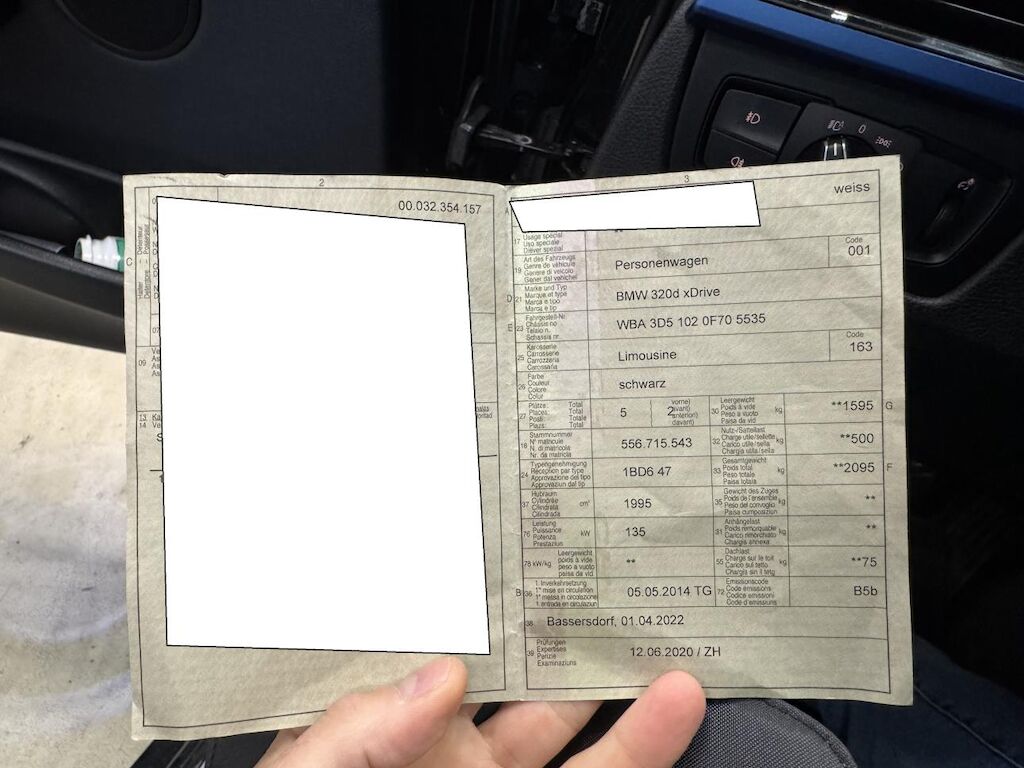 2
00.032.354.157
C
09
13
14
3
weiss
17
Usage spécial
Uso speciale
Diever spezial
19
Art des Fahrzeugs
Genre de véhicule
Genere di veicolo
Gener dal vehichel
Personenwagen
Code
001
D
21
Marke und Typ
Marque et type
Marca e tipo
Marca e tip
BMW 320d xDrive
E
23
Fahrgestell-Nr.
Châssis no
Telaio n.
Schassis nr.
WBA 3D5 102 0F70 5535
25
Karosserie
Carrosserie
Carrozzeria
Carossaria
Limousine
Code
163
26
Farbe
Couleur
Colore
Colur
schwarz
27
Plätze: Total
Places: Total
Posti: Totale
Plazs: Total
5
2
vorne)
avant)
anteriori)
davant)
30
Leergewicht
Poids à vide
Peso a vuoto
Paisa da vid
kg
**1595
G
18
Stammnummer
N° matricule
N. di matricola
Nr. da matricla
556.715.543
32
Nutz-/Sattellast
Charge utile/sellette
Carico utile/sella
Chargia utila/sella
kg
**500
24
Typengenehmigung
Réception par type
Approvazione del tipo
Approvaziun dal tip
1BD6 47
33
Gesamtgewicht
Poids total
Peso totale
Paisa totala
kg
**2095
F
37
Hubraum
Cylindrée
Cilindrata
Cilindrada
cm³
1995
35
Gewicht des Zuges
Poids de l'ensemble
Peso del convoglio
Paisa cumposiziun
kg
**
76
Leistung
Puissance
Potenza
Prestaziun
kW
135
31
Anhängelast
Poids remorquable
Carico rimorchiato
Chargia annexa
kg
**
78 kW/kg
Leergewicht
poids à vide
peso a vuoto
paisa da vid
**
55
Dachlast
Charge sur le toit
Carico sul tetto
Chargia sin il tetg
kg
**75
B
36
1. Inverkehrsetzung
1re mise en circulation
1a messa in circolazione
1. entrada en circulaziun
05.05.2014 TG
72
Emissionscode
Code émissions
Codice emissioni
Code d'emissiuns
B5b
38
Bassersdorf, 01.04.2022
39
Prüfungen
Expertises
Perizie
Examinaziuns
12.06.2020 / ZH